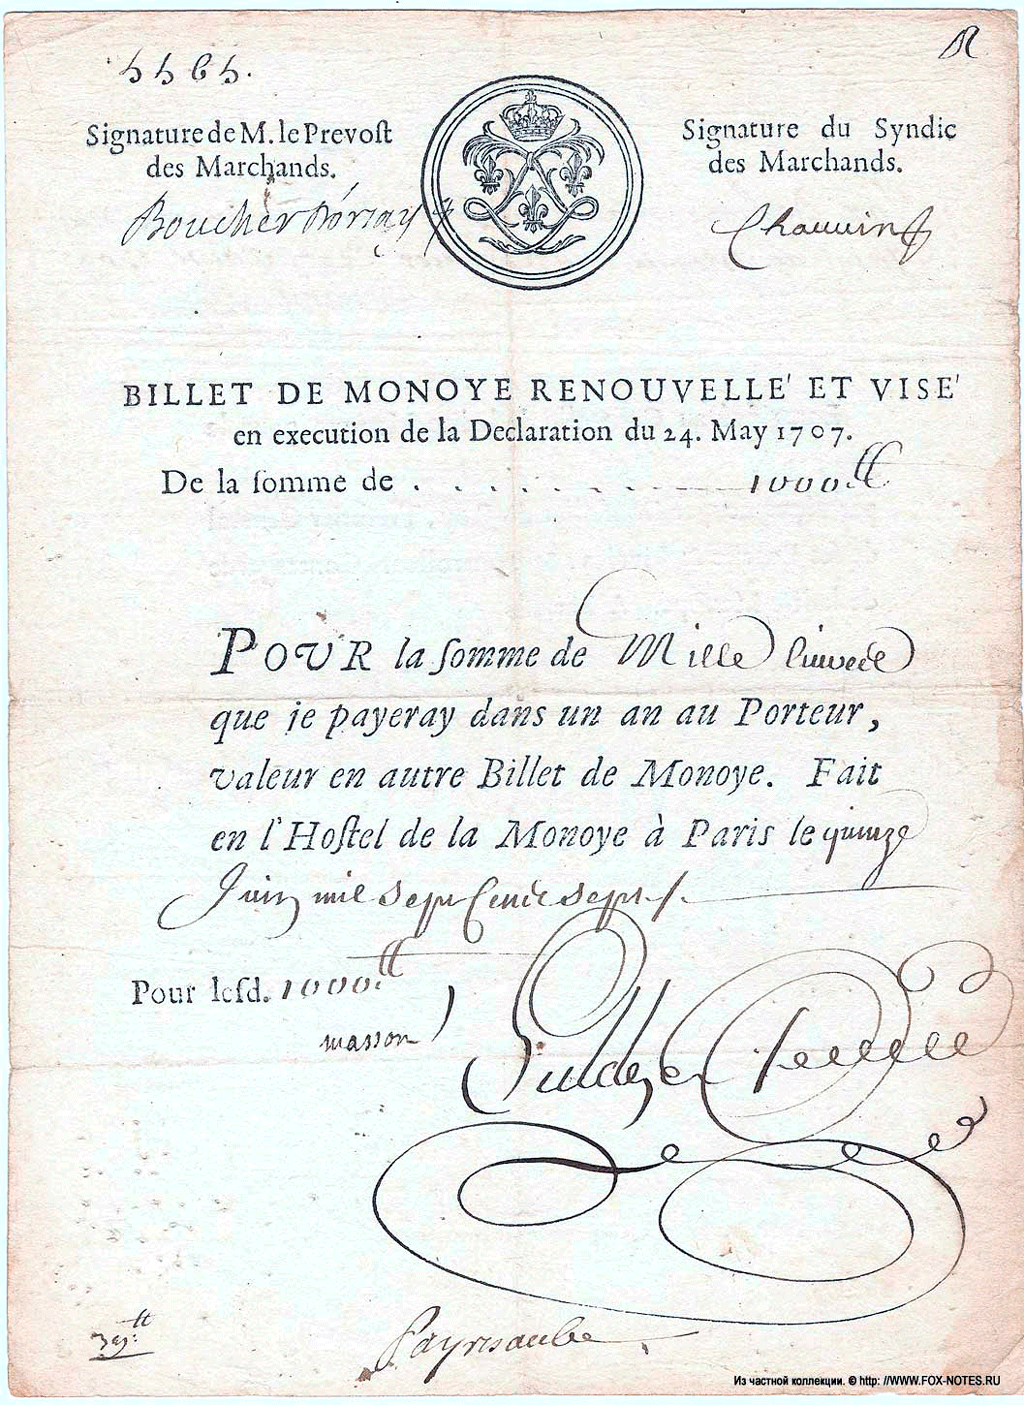 Signature de M. le Prevost
des Marchands.
Boucher Dorsay
Signature du Syndic
des Marchands.
Chauvin
BILLET DE MONOYE RENOUVELLE' ET VISE'
en execution de la Declaration du 24. May 1707.
De la somme de . . . . . . . . 1000.tt
POUR la somme de Mille
que je payeray dans un an au Porteur,
valeur en autre Billet de Monoye. Fait
en l'Hostel de la Monoye à Paris le quinze
Juin mil sept cent sept
Pour lesd. 1000.tt
masson
Из частной коллекции. © http: //WWW.FOX-NOTES.RU